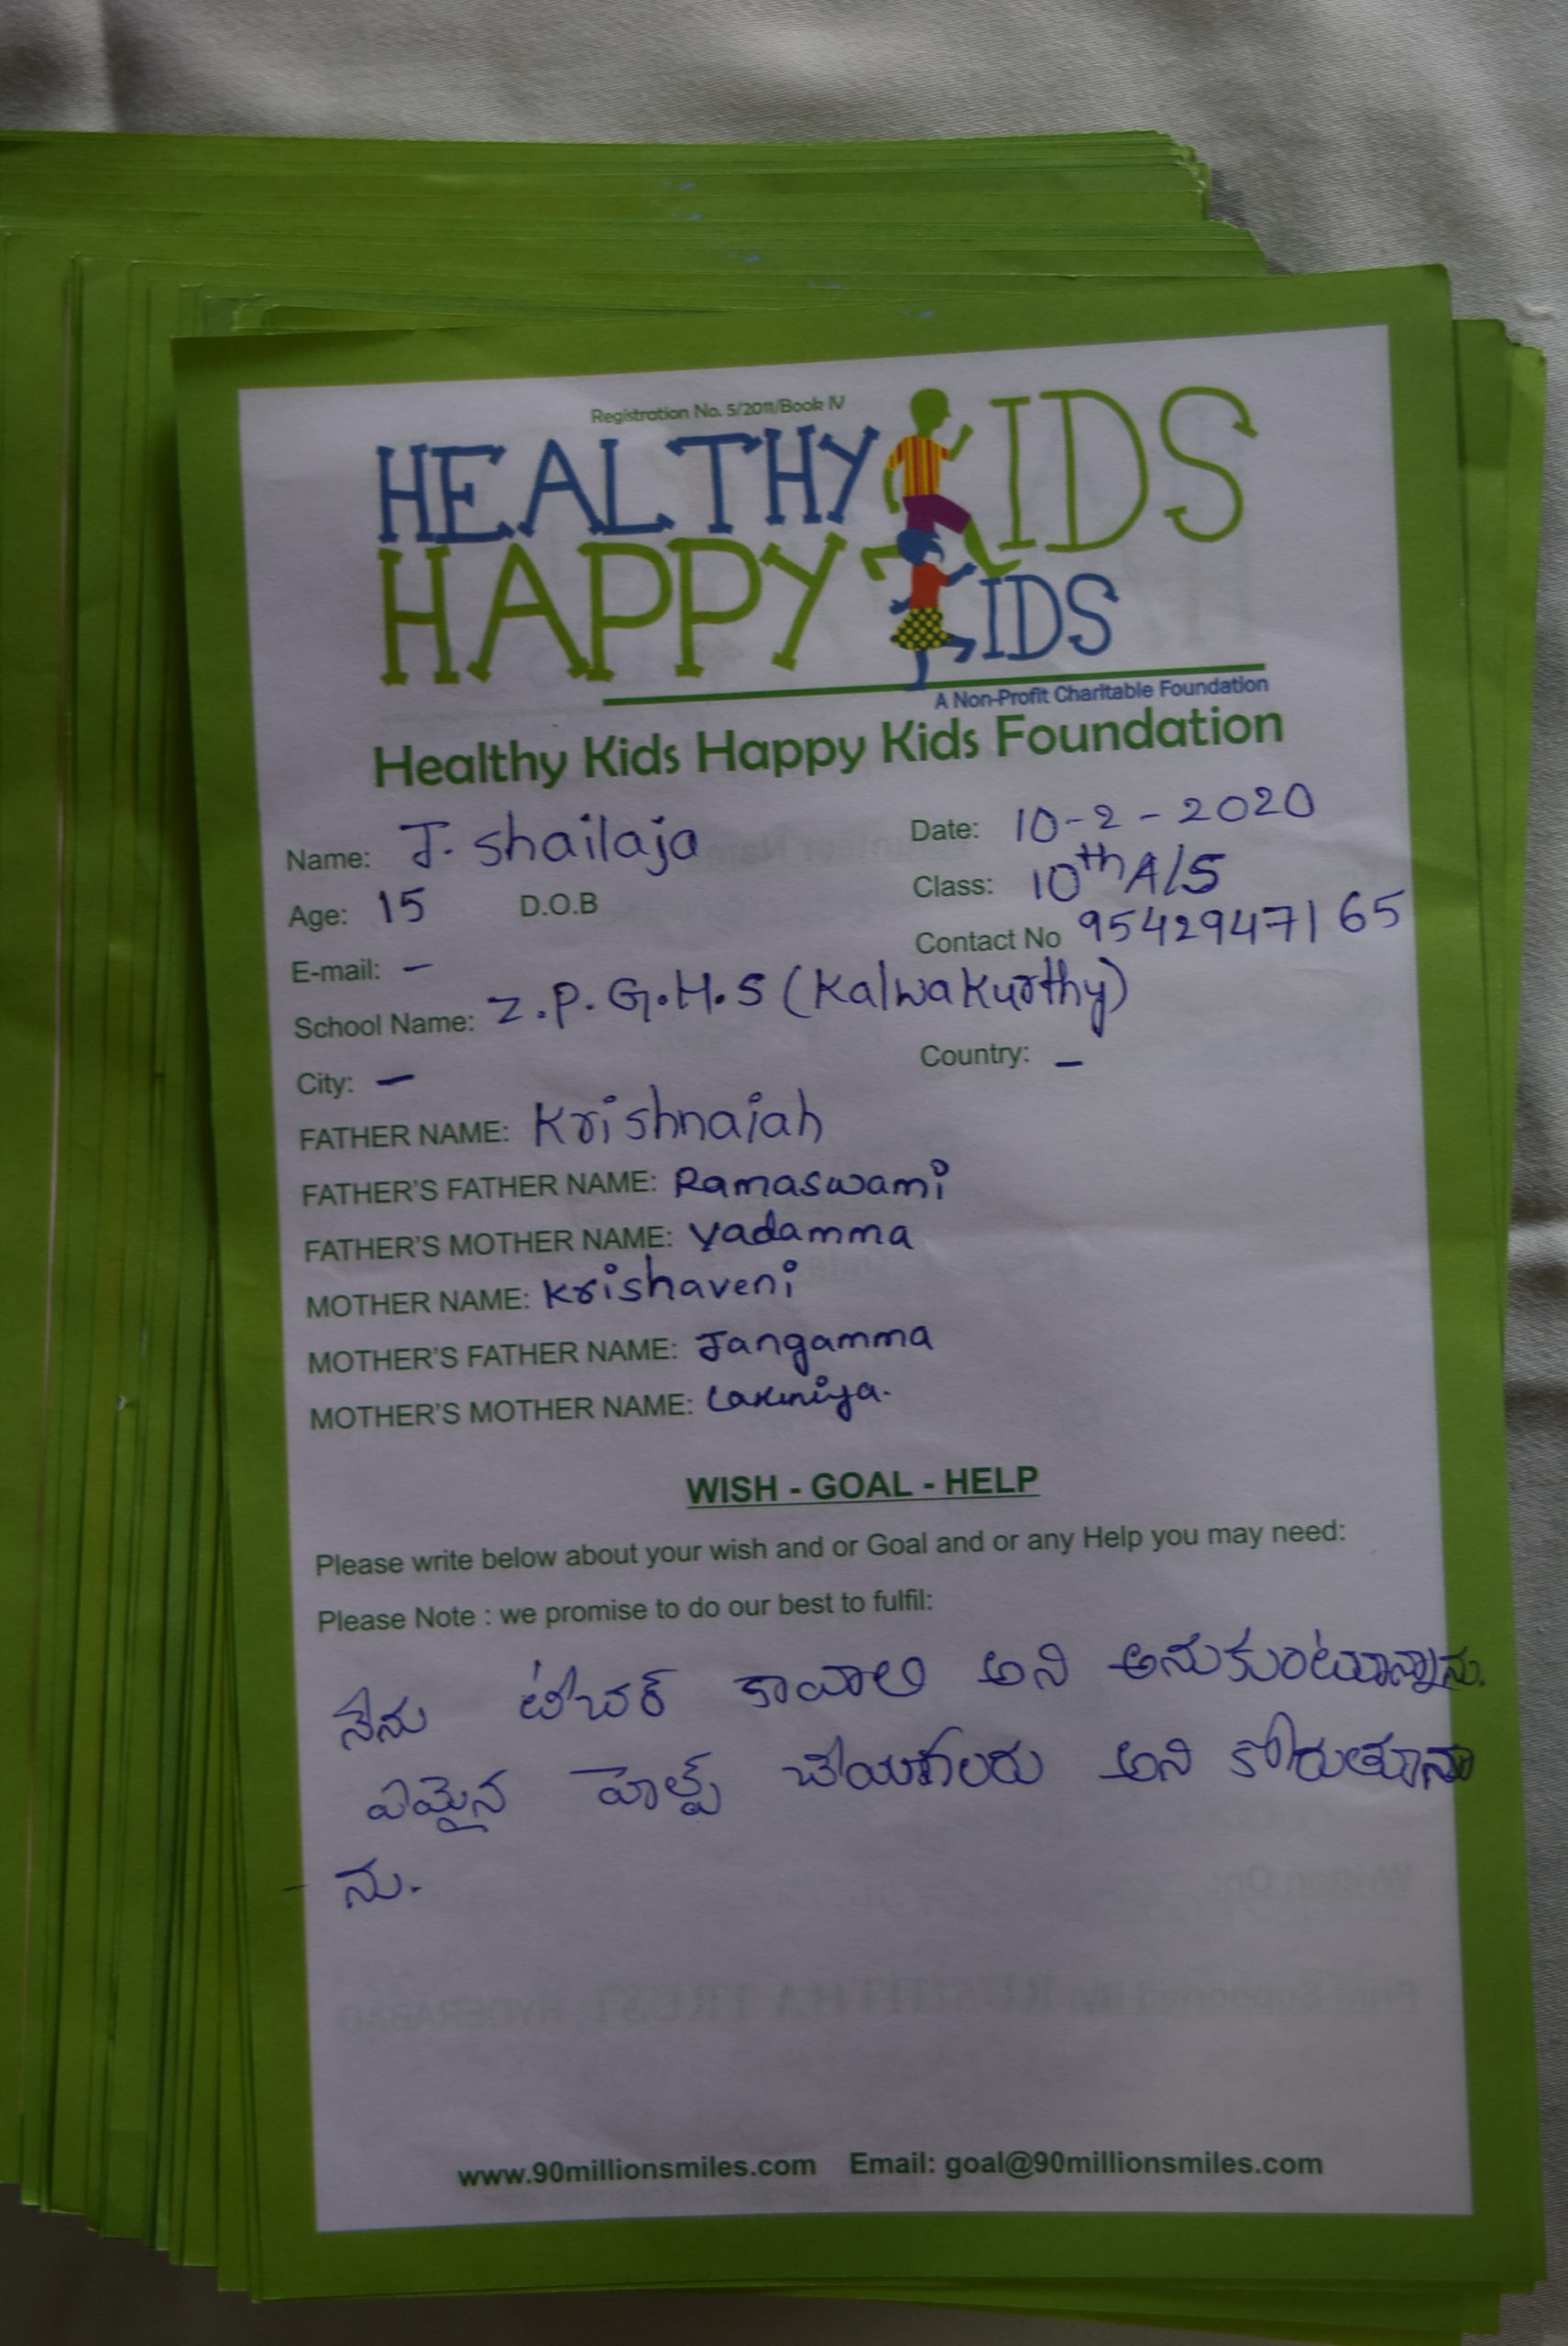 Registration No. 5/2011/Book IV
HEALTHY KIDS
HAPPY KIDS
A Non-Profit Charitable Foundation
Healthy Kids Happy Kids Foundation
Name: J. shailaja Date: 10-2-2020
Age: 15 D.O.B Class: 10th A/S
E-mail: – Contact No 9542947165
School Name: Z.P.G.H.S (Kalwakurthy)
City: – Country: –
FATHER NAME: Krishnaiah
FATHER'S FATHER NAME: Ramaswami
FATHER'S MOTHER NAME: Yadamma
MOTHER NAME: Krishaveni
MOTHER'S FATHER NAME: Jangamma
MOTHER'S MOTHER NAME:
WISH - GOAL - HELP
Please write below about your wish and or Goal and or any Help you may need:
Please Note : we promise to do our best to fulfil:
నేను టీచర్ కావాలి అని అనుకుంటూన్నాను.
ఏమైన హెల్ప్ చేయగలరు అని కోరుతూనా
ను.
www.90millionsmiles.com Email: goal@90millionsmiles.com